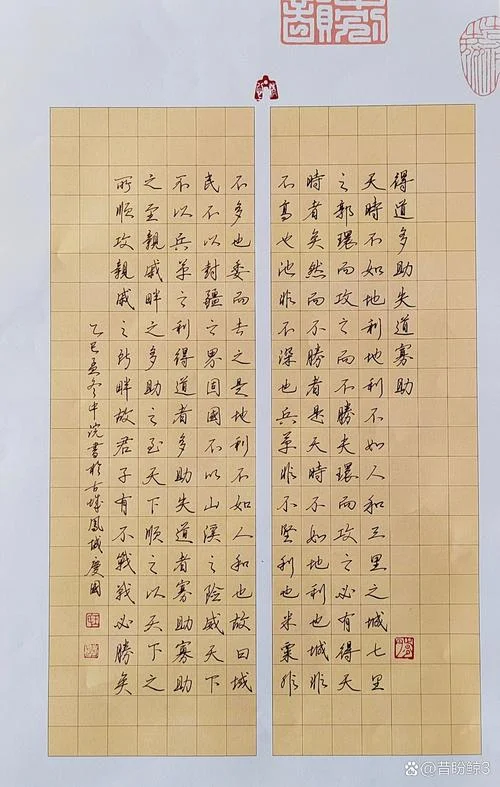 得道多助失道寡助
天時不如地利地利不如人和三里之城七里
之郭環而攻之而不勝夫環而攻之必有得天
時者矣然而不勝者是天時不如地利也城非
不高也池非不深也兵革非不堅利也米粟非
不多也委而去之是地利不如人和也故曰域
民不以封疆之界固國不以山溪之險威天下
不以兵革之利得道者多助失道者寡助寡助
之至親戚畔之多助之至天下順之以天下之
所順攻親戚之所畔故君子有不戰戰必勝矣
乙巳孟冬中浣書於古鳳城慶國
@昔盼鲸3